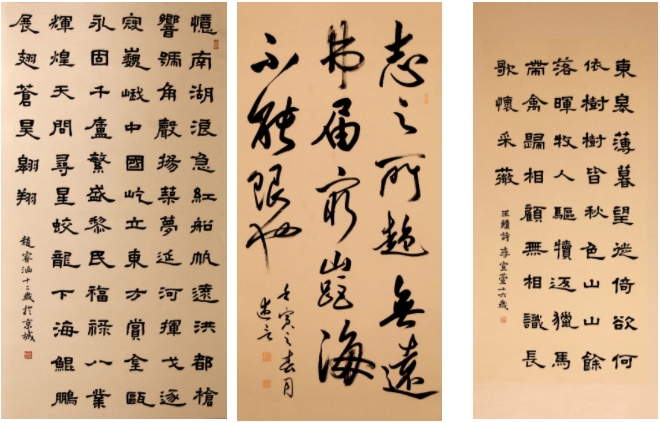 憶南湖浪急紅船帆遠洪都槍
響號角聲揚築夢延河揮戈逐
寇巍峨中國屹立東方賞金甌
永固千廬繁盛黎民福祿八業
輝煌天問尋星蛟龍下海鯤鵬
展翅蒼昊翱翔
趙睿涵十二歲於京城
志之所趨無遠
弗届窮山距海
不能限也
壬寅之春月
東皋薄暮望徙倚欲何
依樹樹皆秋色山山餘
落暉牧人驅犢返獵馬
帶禽歸相顧無相識長
歌懷采薇
王績詩 李宜萱十六歲